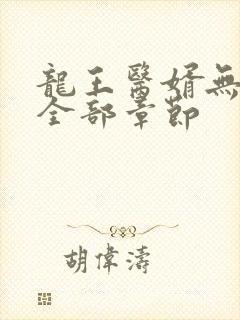 龍王醫婿無
全部章節
胡偉濤